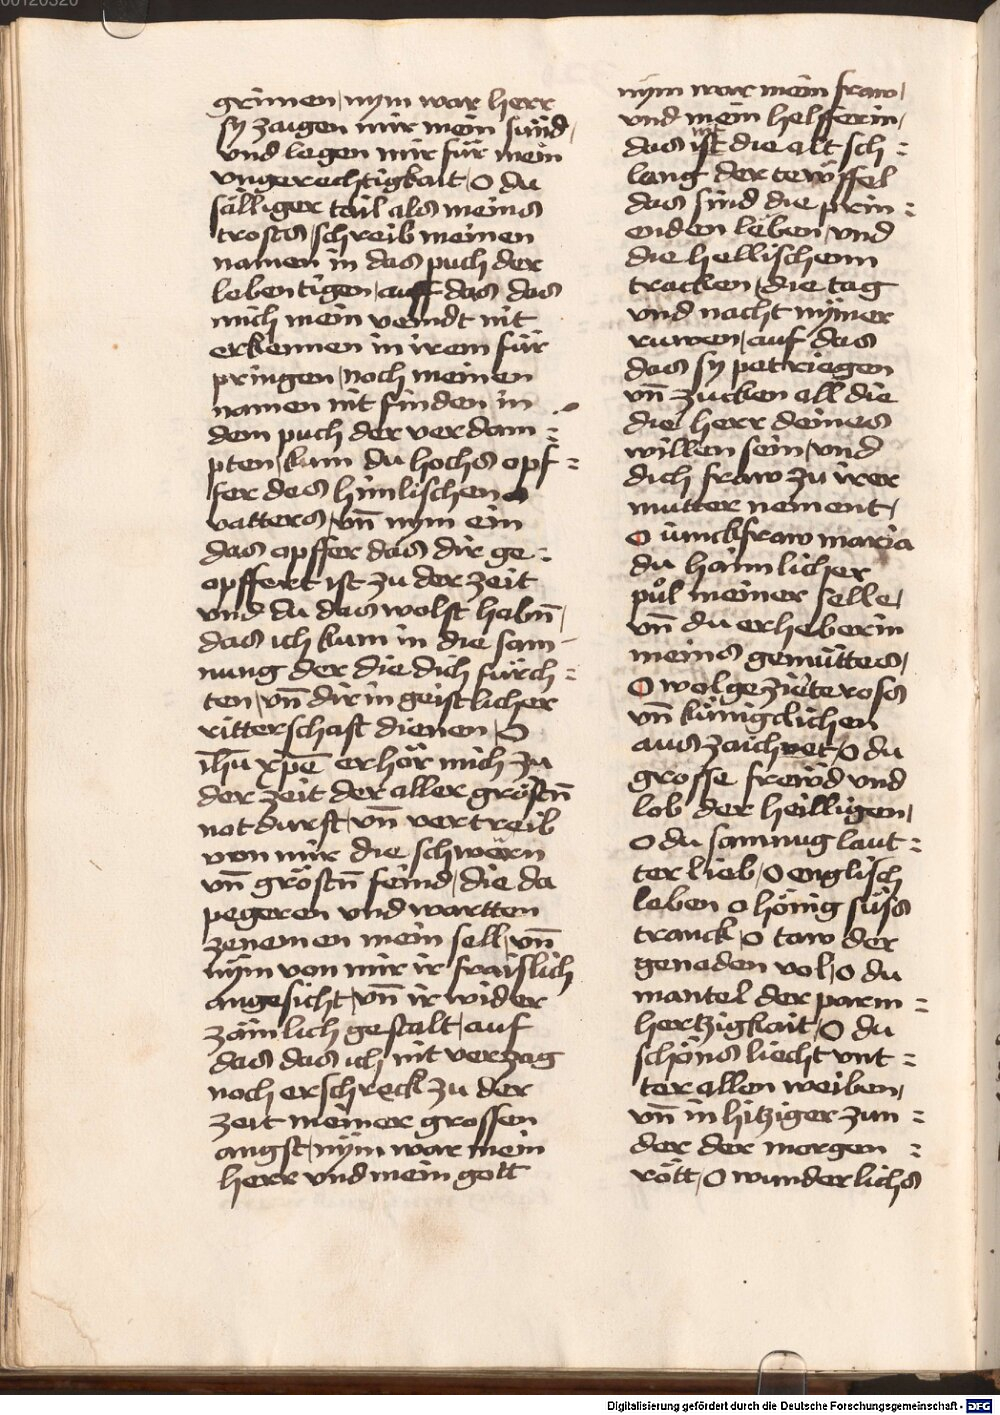 grimen / nym war herr
sy zaigen mir mein sünd /
vnd legen mir für mein
vngerechtigkait / O du
sälliger tail als meins
trosts / schreib meinen
namen in das puch der
lebentigen / auff das das
mich mein veindt nit
erkennen in irem für
pringen / noch meinen
namen nit finden in
dem puch der verdam =
pten / kum du hochs opf =
fer des himlischen
vatters / vn̄ nym ein
das opffer das dir ge =
opffert ist zu der zeit
vnd du das wolst habn̄ /
das ich kum in die sam -
nung der die dich fürch =
ten / vn̄ dir in geistlicher
ritterschaft dienen / O
ih̄u xp̄e erhör mich zu
der zeit der aller gröstn̄
notdurft / vn̄ vertreib
von mir die schwern
vn̄ gröstn̄ feind / die da
pegeren vnd wartten
zenemen mein sell / vn̄
nÿm von mir ir fraislich
angesicht / vn̄ ir wider
zämlich gestalt / auf
das das ich nit verzag
noch erschreck zu der
zeit meiner grossen
angst / nÿm war mein
herr vnd mein gott
nÿm war mein fraw /
vnd mein helfferin /
das ist die alt sch =
lang der tewffel
das sind die prin =
enden leben / vnd
die hellischenn
tracken / die tag
vnd nacht nÿmer
ruwen / auf das
das sy petriegen
vn̄ zucken all die
die herr deines
willen sein / vnd
dich fraw zu irer
mutter nement /
O iunckfraw maria
du haimlicher
půl meiner selle /
vn̄ du erheberin
meins gemüttes /
O wolgezierte ross
vn̄ künigclichen
aus zaichnet / O du
grosse frewd vnd
lob der heilligen /
O du samnug laut =
ter lieb / O englisch
leben O hönig süss
tranck / O taw der
genaden vol / O du
mantel der parm =
hertzigkait / O du
schöns liecht vnt =
ter allen weiben /
vn̄ in hitziger zun =
der der morgen =
rött / O wunderlichs
Digitalisierung gefördert durch die Deutsche Forschungsgemeinschaft - DFG